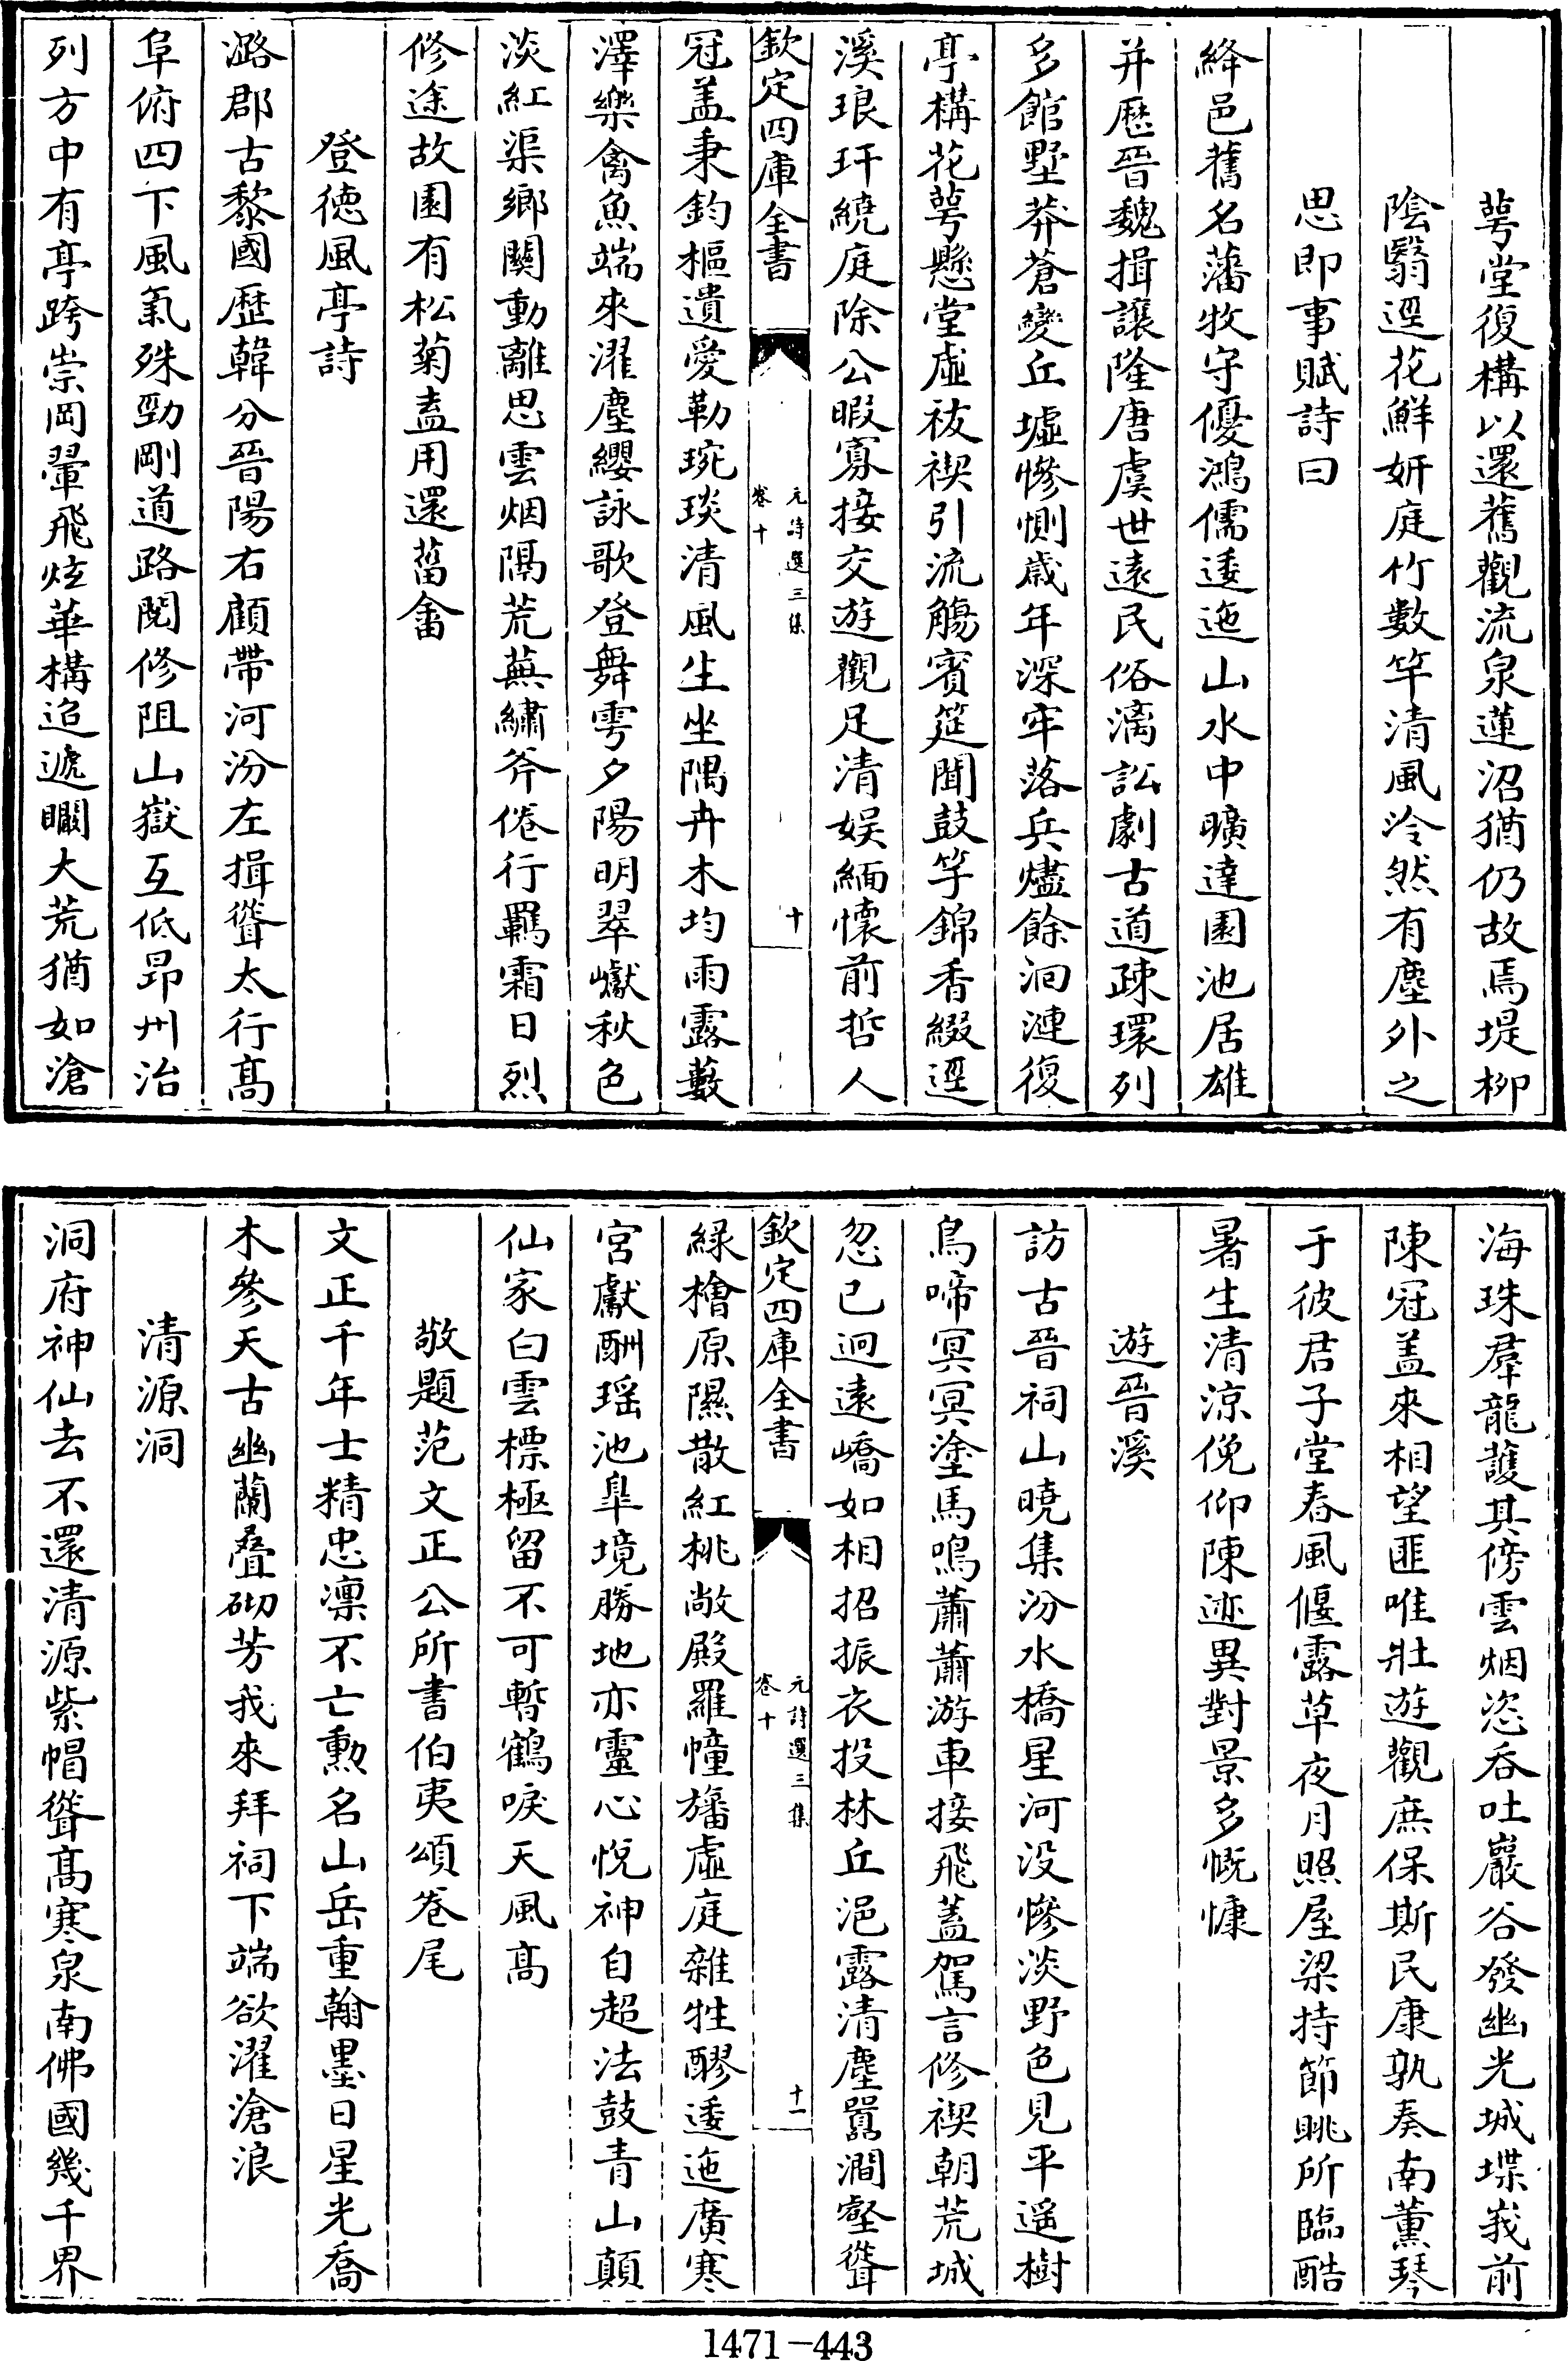 萼堂復構以還舊觀流泉蓮沼猶仍故焉堤柳
陰翳逕花鮮妍庭竹數竿清風泠然有塵外之
思即事賦詩曰
絳邑舊名藩牧守優鴻儒逶迤山水中曠達園池居雄
并歷晉魏揖讓隆唐虞世遠民俗漓訟劇古道疎環列
多館墅莽蒼變丘墟慘惻歲年深牢落兵燼餘洄漣復
亭構花萼懸堂虛祓禊引流觴賓筵聞鼓竽錦香綴逕
溪琅玕繞庭除公暇寡接交遊觀足清娱緬懷前哲人
欽定四庫全書
元詩選三集
卷十
十
冠盖秉鈞樞遺愛勒琬琰清風生坐隅卉木均雨露藪
澤樂禽魚端來濯塵纓詠歌登舞雩夕陽明翠巘秋色
淡紅渠鄉關動離思雲烟隔荒蕪繡斧倦行羈霜日烈
修途故園有松菊盍用還菑畬
登德風亭詩
潞郡古黎國歷韓分晉陽右顧帶河汾左揖聳太行髙
阜俯四下風氣殊勁剛道路閱修阻山嶽互低昻州治
列方中有亭跨崇岡翬飛炫華構迢遞矙大荒猶如滄
海珠羣龍護其傍雲烟恣吞吐巖谷發幽光城堞峩前
陳冠盖來相望匪唯壯遊觀庶保斯民康孰奏南薫琴
于彼君子堂春風偃露草夜月照屋梁持節眺所臨酷
暑生清涼俛仰陳迹異對景多慨慷
遊晉溪
訪古晉祠山曉集汾水橋星河没慘淡野色見平遥樹
鳥啼冥冥塗馬鳴蕭蕭游車接飛蓋駕言修禊朝荒城
忽已迥遠嶠如相招振衣投林丘浥露清塵囂澗壑聳
欽定四庫全書
元詩選三集
卷十
十一
緑檜原隰散紅桃敞殿羅幢旛虛庭雜牲醪逶迤廣寒
宮獻酬瑶池臯境勝地亦靈心悅神自超法鼓青山顛
仙家白雲標極留不可暫鶴唳天風髙
敬題范文正公所書伯夷頌卷尾
文正千年士精忠凛不亡勲名山岳重翰墨日星光喬
木參天古幽蘭叠砌芳我來拜祠下端欲濯滄浪
清源洞
洞府神仙去不還清源紫帽聳髙寒泉南佛國幾千界
1471－443